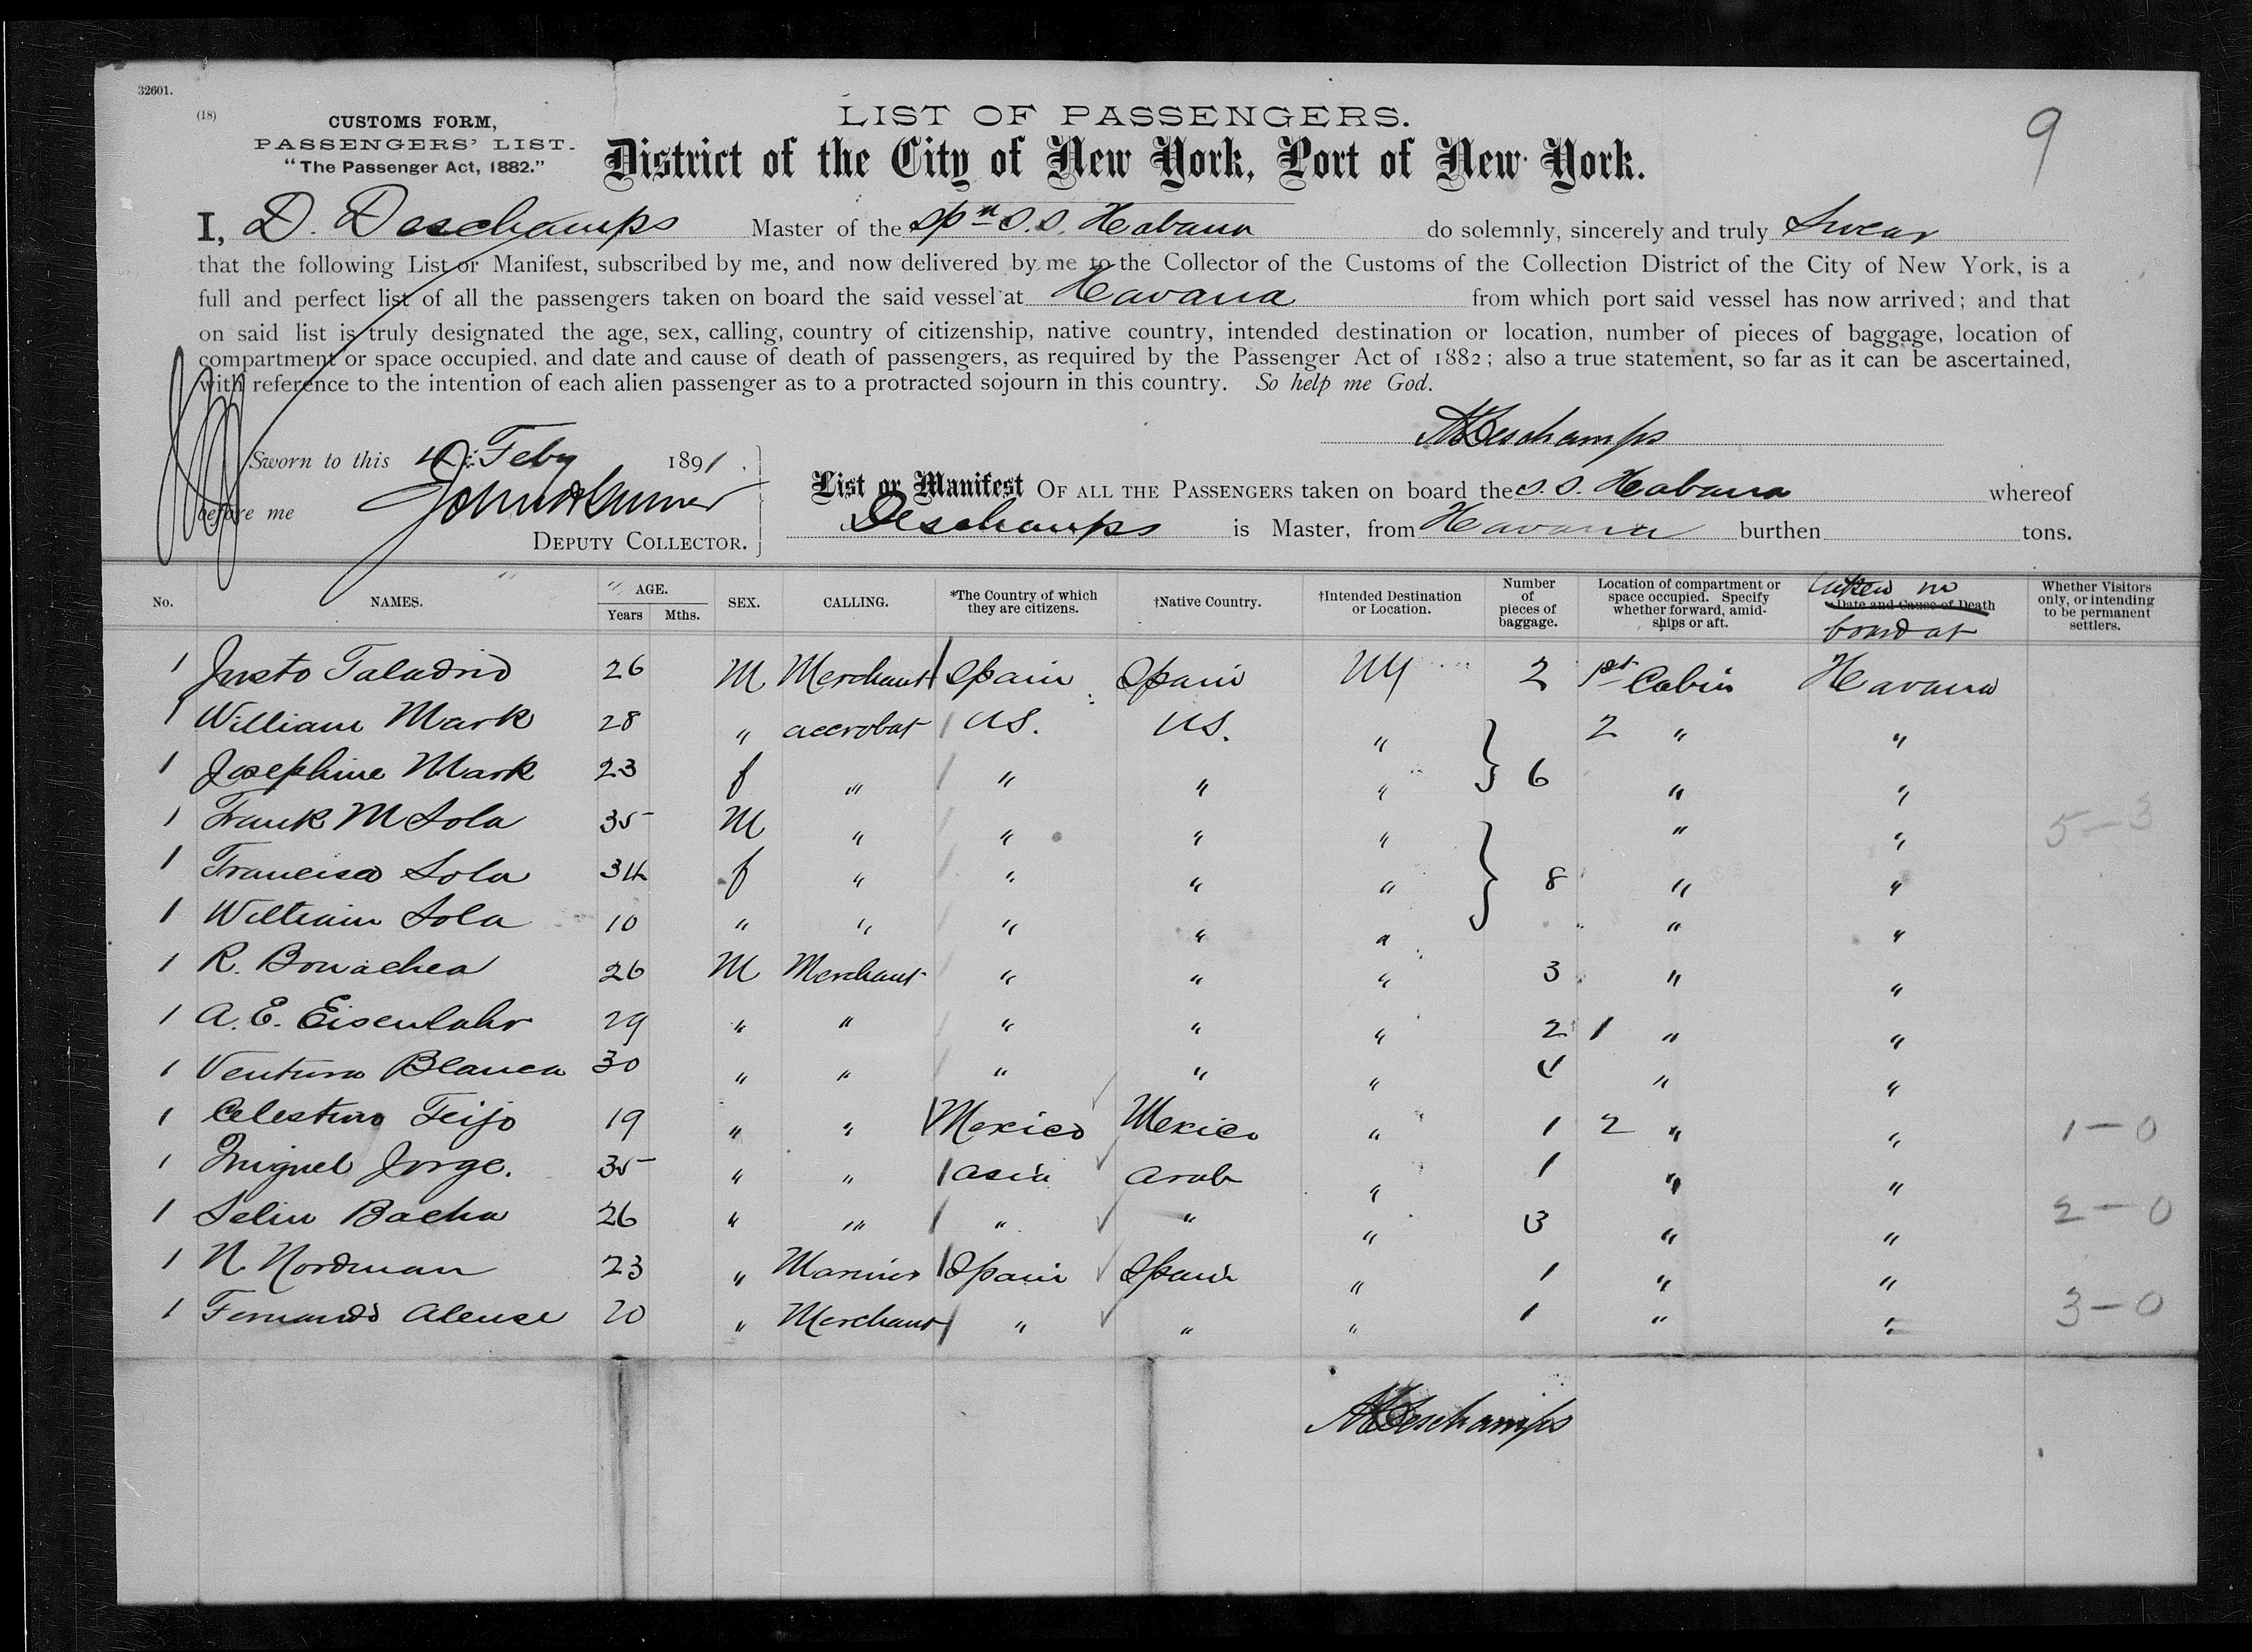 32601.
(18)
CUSTOMS FORM,
PASSENGERS' LIST.
"The Passenger Act, 1882."
LIST OF PASSENGERS.
District of the City of New York, Port of New York.
9
I, D. Deschamps Master of the Spn S.S. Habana do solemnly, sincerely and truly Swear
that the following List or Manifest, subscribed by me, and now delivered by me to the Collector of the Customs of the Collection District of the City of New York, is a
full and perfect list of all the passengers taken on board the said vessel at Havana from which port said vessel has now arrived; and that
on said list is truly designated the age, sex, calling, country of citizenship, native country, intended destination or location, number of pieces of baggage, location of
compartment or space occupied, and date and cause of death of passengers, as required by the Passenger Act of 1882; also a true statement, so far as it can be ascertained,
with reference to the intention of each alien passenger as to a protracted sojourn in this country. So help me God.
Deschamps
Sworn to this Feby 1891.
before me
DEPUTY COLLECTOR.
List or Manifest OF ALL THE PASSENGERS taken on board the S.S. Habana whereof
Deschamps is Master, from Havana burthen tons.
No. NAMES. AGE. Years Mths. SEX. CALLING. *The Country of which they are citizens. †Native Country. †Intended Destination or Location. Number of pieces of baggage. Location of compartment or space occupied. Specify whether forward, amidships or aft. Date and Cause of Death board at Whether Visitors only, or intending to be permanent settlers.
1 Justo Taladrid 26 M Merchant Spain Spain NY 2 1st Cabin Havana
1 William Mark 28 " accrobat US. US. " 2 " "
1 Josephine Mark 23 f " " " " 6 " "
1 Frank M Sola 35 M " " " " " " 5-3
1 Francisca Sola 34 f " " " " 8 " "
1 William Sola 10 " " " " " " "
1 R. Bonachea 26 M Merchant " " " 3 " "
1 A. E. Eisenlohr 29 " " " " " 2 1 " "
1 Ventura Blanca 30 " " " " " " "
1 Celestino Feijo 19 " " Mexico Mexico " 1 2 " " 1-0
1 Miguel Jorge. 35 " " asia arab " 1 " "
1 Selin Bacha 26 " " " " " 3 " " 2-0
1 N. Nordman 23 " Mariner Spain Spain " 1 " "
1 Fernando 20 " Merchant " " " 1 " " 3-0
Deschamps